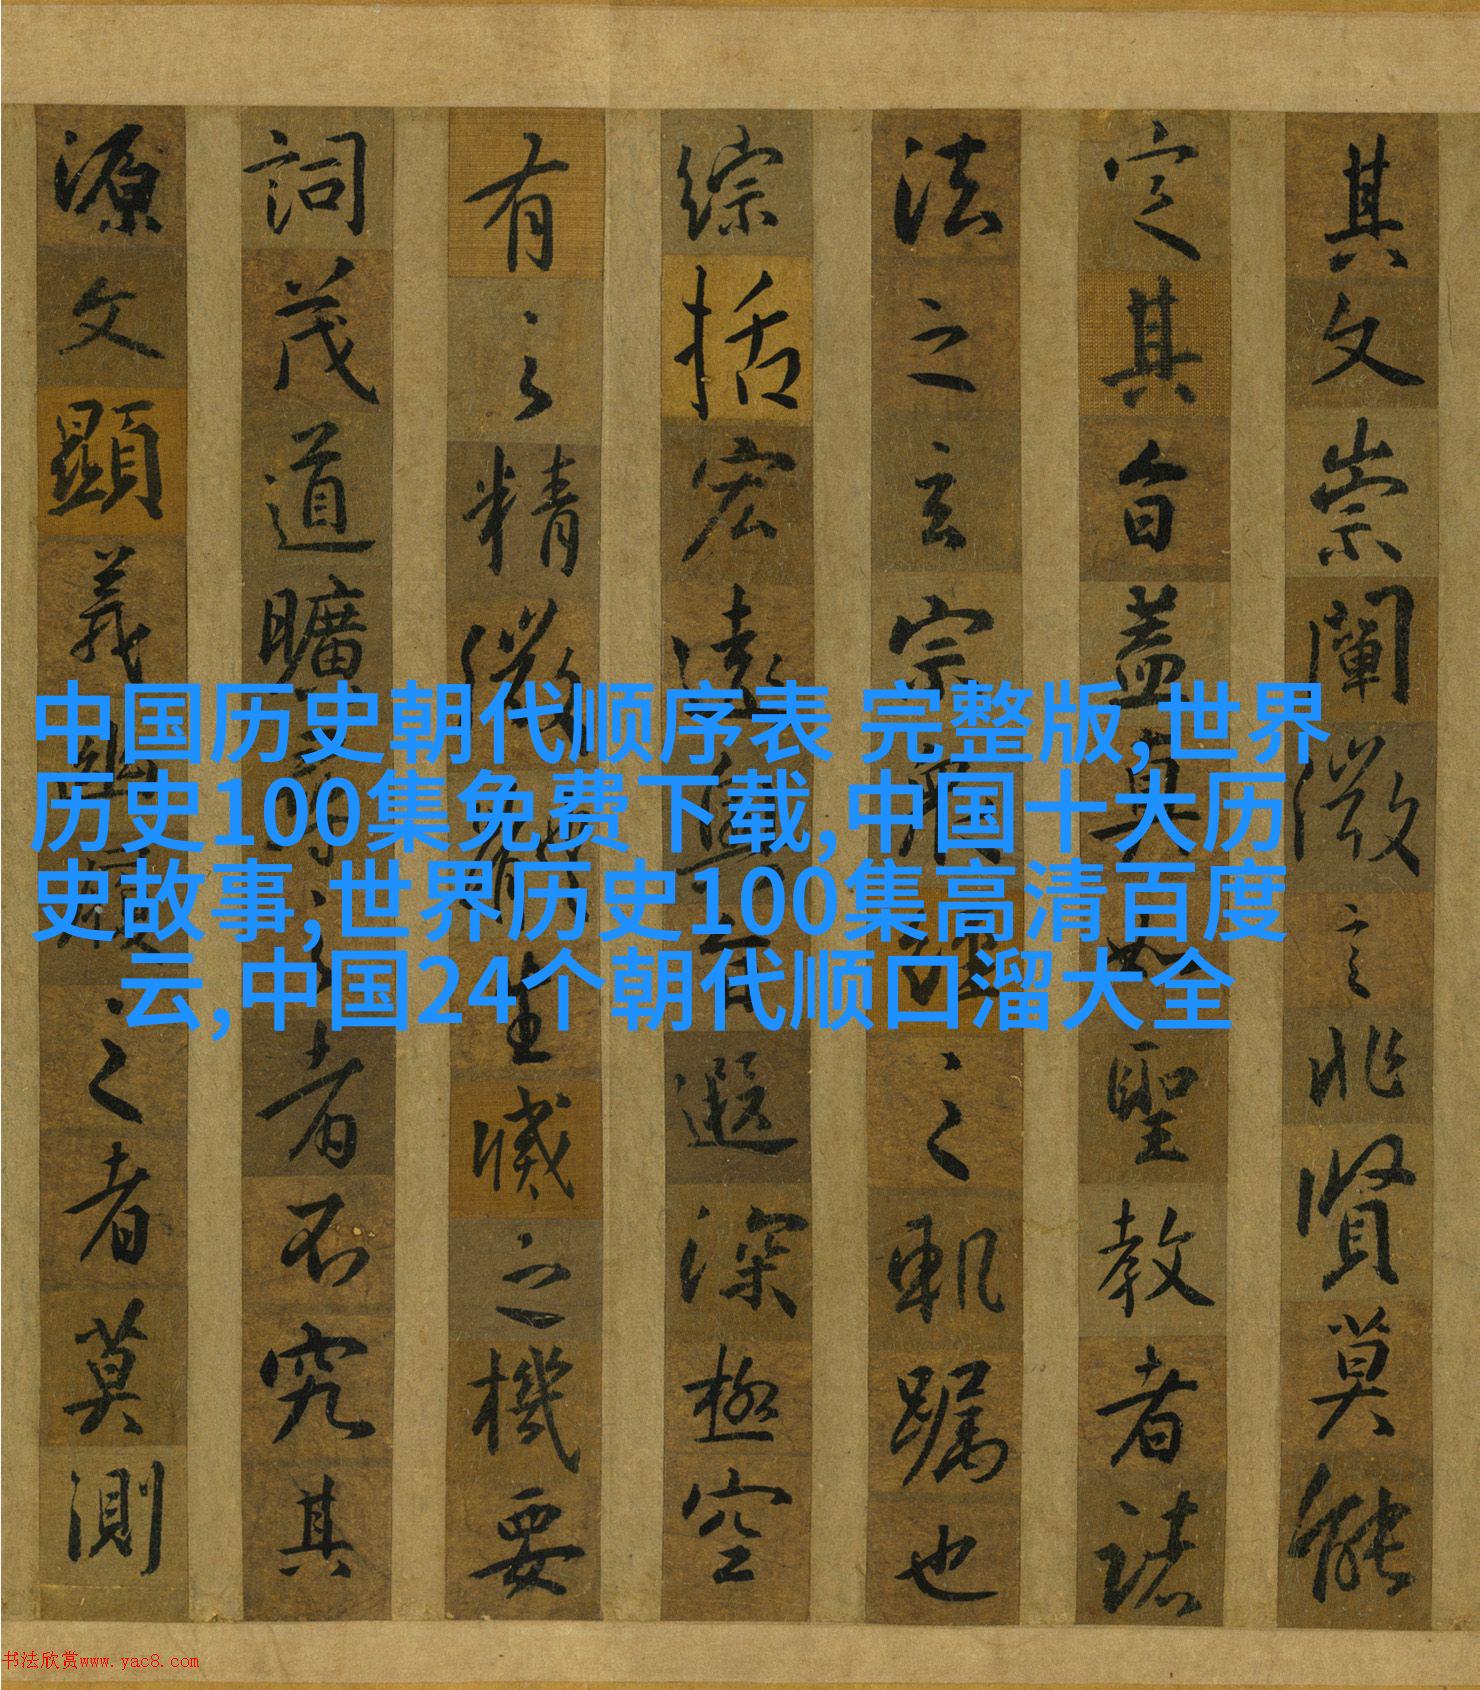 其文崇闡微言非賢莫能
定其旨蓋真如聖教者諸
法之玄宗衆經之軌躅也
綜括宏遠奧旨遐深極空
有之精微體生滅之機要
詞茂道曠尋之者不究其
源文顯義幽履之者莫測
中国历史朝代顺序表 完整版,世界
历史100集免费下载,中国十大历
史故事,世界历史100集高清百度
云,中国24个朝代顺口溜大全
书法欣赏www.yac8.com